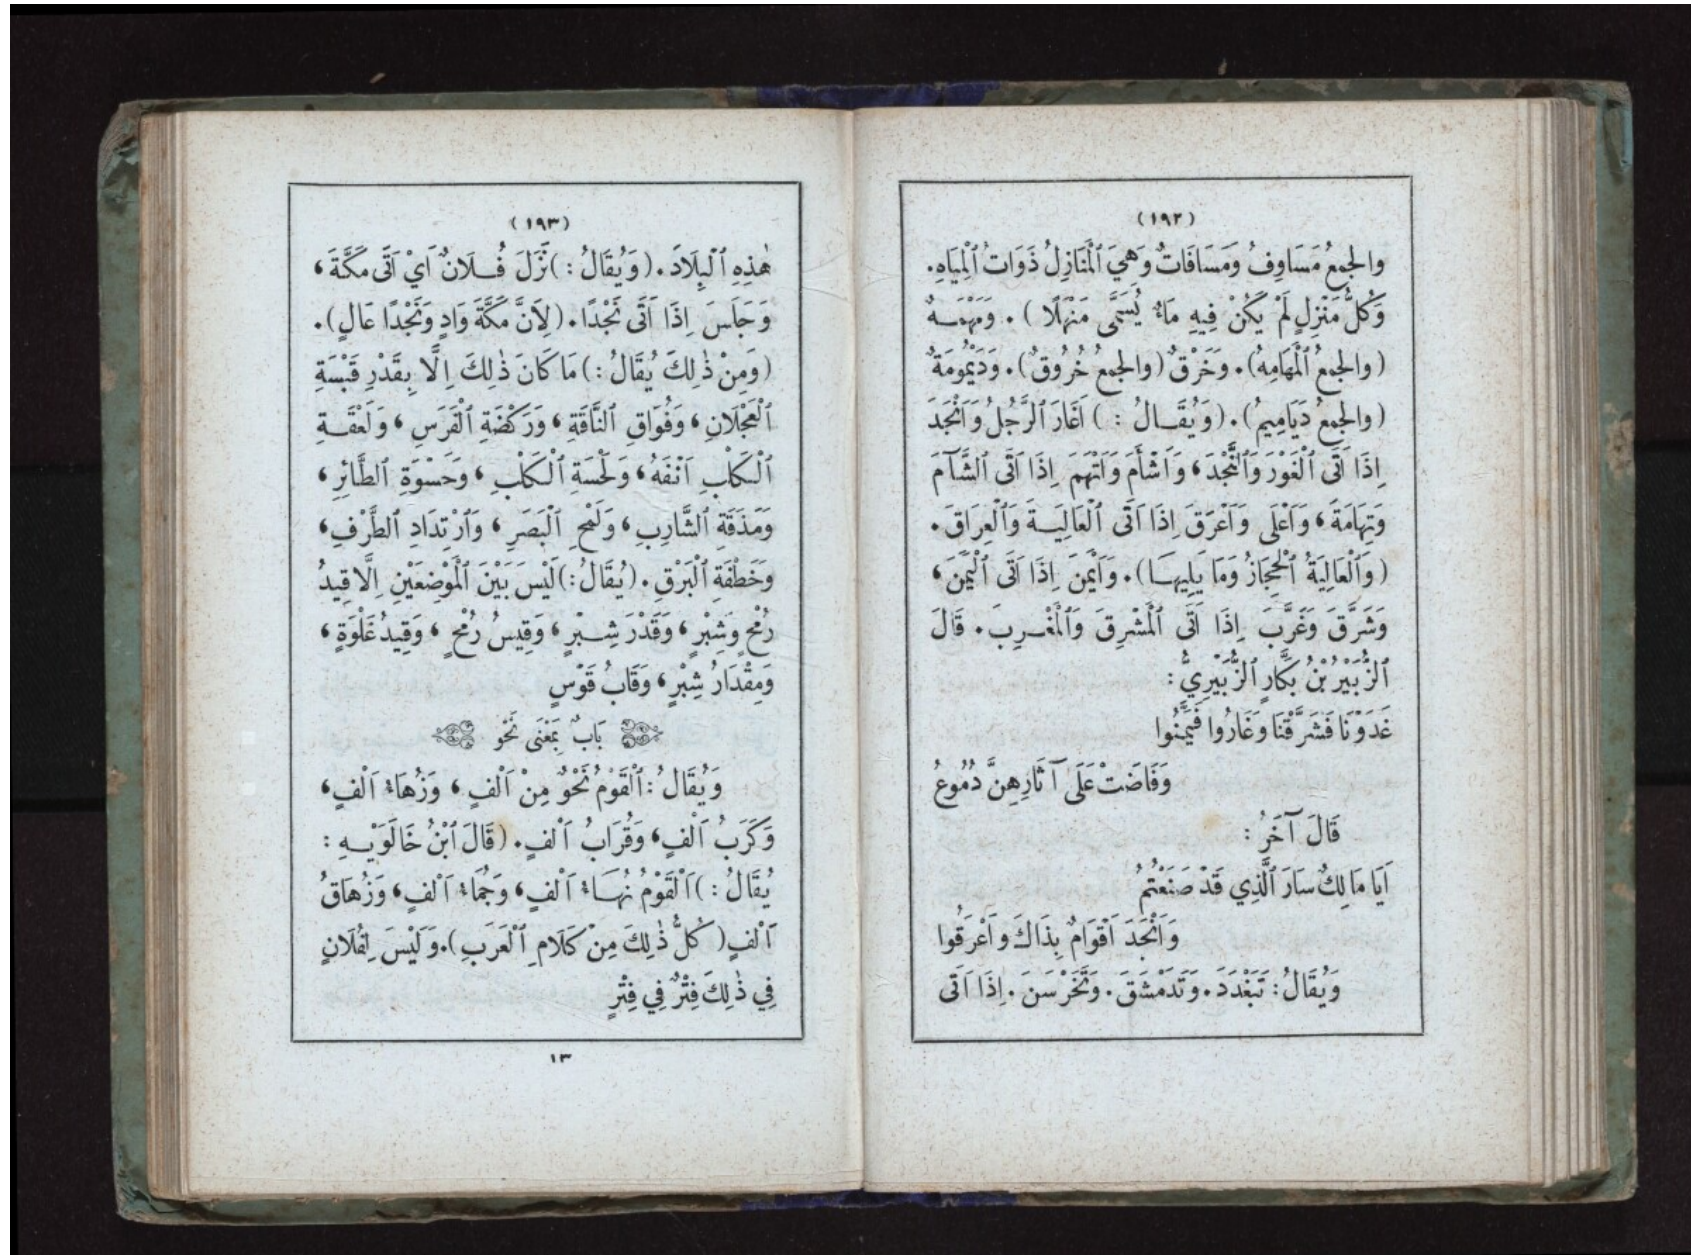 (١٩٢)
والجمعُ مَسَاوِفُ وَمَسَافَاتٌ وَهِيَ ٱلْمَنَازِلُ ذَوَاتُ ٱلْمِيَاهِ.
وَكُلُّ مَنْزِلٍ لَمْ يَكُنْ فِيهِ مَاءٌ يُسَمَّى مَنْهَلًا). وَمَهْمَهٌ
(والجمعُ ٱلْمَهَامِهُ). وَخَرْقٌ (والجمعُ خُرُوقٌ). وَدَيْمُومَةٌ
(والجمعُ دَيَامِيمُ). (وَيُقَالُ :) اَغَارَ ٱلرَّجُلُ وَاَنْجَدَ
اِذَا اَتَى ٱلْغَوْرَ وَٱلنَّجْدَ، وَاَشْأَمَ وَاَتْهَمَ اِذَا اَتَى ٱلشَّآمَ
وَتِهَامَةَ، وَاَعْلَى وَاَعْرَقَ اِذَا اَتَى ٱلْعَالِيَةَ وَٱلْعِرَاقَ.
(وَٱلْعَالِيَةُ ٱلْحِجَازُ وَمَا يَلِيهَا). وَاَيْمَنَ اِذَا اَتَى ٱلْيَمَنَ،
وَشَرَّقَ وَغَرَّبَ اِذَا اَتَى ٱلْمَشْرِقَ وَٱلْمَغْرِبَ. قَالَ
ٱلزُّبَيْرُ بْنُ بَكَّارٍ ٱلزُّبَيْرِيُّ :
غَدَوْنَا فَشَرَّقْنَا وَغَارُوا فَيَمَّنُوا
وَفَاضَتْ عَلَى آثَارِهِنَّ دُمُوعُ
قَالَ آخَرُ :
اَيَا مَالِكٌ سَارَ ٱلَّذِي قَدْ صَنَعْتُمُ
وَاَنْجَدَ اَقْوَامٌ بِذَاكَ وَاَعْرَقُوا
وَيُقَالُ : تَبَغْدَدَ. وَتَدَمْشَقَ. وَتَخَرْسَنَ. اِذَا اَتَى
(١٩٣)
هٰذِهِ ٱلْبِلَادَ. (وَيُقَالُ :) نَزَلَ فُلَانٌ اَيْ اَتَى مَكَّةَ،
وَجَلَسَ اِذَا اَتَى نَجْدًا. (لِاَنَّ مَكَّةَ وَادٍ وَنَجْدًا عَالٍ).
(وَمِنْ ذٰلِكَ يُقَالُ :) مَا كَانَ ذٰلِكَ اِلَّا بِقَدْرِ قَبْسَةِ
ٱلْعَجْلَانِ، وَفُوَاقِ ٱلنَّاقَةِ، وَرَكْضَةِ ٱلْفَرَسِ، وَلَعْقَةِ
ٱلْكَلْبِ اَنْفَهُ، وَلَحْسَةِ ٱلْكَلْبِ، وَحَسْوَةِ ٱلطَّائِرِ،
وَمَذَقَةِ ٱلشَّارِبِ، وَلَمْحِ ٱلْبَصَرِ، وَٱرْتِدَادِ ٱلطَّرْفِ،
وَخَطْفَةِ ٱلْبَرْقِ. (يُقَالُ :) لَيْسَ بَيْنَ ٱلْمَوْضِعَيْنِ اِلَّا قِيدُ
رُمْحٍ وَشِبْرٍ، وَقَدْرَ شِبْرٍ، وَقِيسُ رُمْحٍ، وَقِيدُ غَلْوَةٍ،
وَمِقْدَارُ شِبْرٍ، وَقَابُ قَوْسٍ
بَابٌ بِمَعْنَى نَحْوِ
وَيُقَالُ : ٱلْقَوْمُ نَحْوٌ مِنْ اَلْفٍ، وَزُهَاءُ اَلْفٍ،
وَكَرَبُ اَلْفٍ، وَقُرَابُ اَلْفٍ. (قَالَ ٱبْنُ خَالَوَيْهِ :
يُقَالُ :) اَلْقَوْمُ نُهَاءُ اَلْفٍ، وَجُمَاءُ اَلْفٍ، وَزُهَاقُ
اَلْفٍ (كُلُّ ذٰلِكَ مِنْ كَلَامِ ٱلْعَرَبِ). وَلَيْسَ لِفُلَانٍ
فِي ذٰلِكَ فِتْرٌ فِي فِتْرٍ
١٣